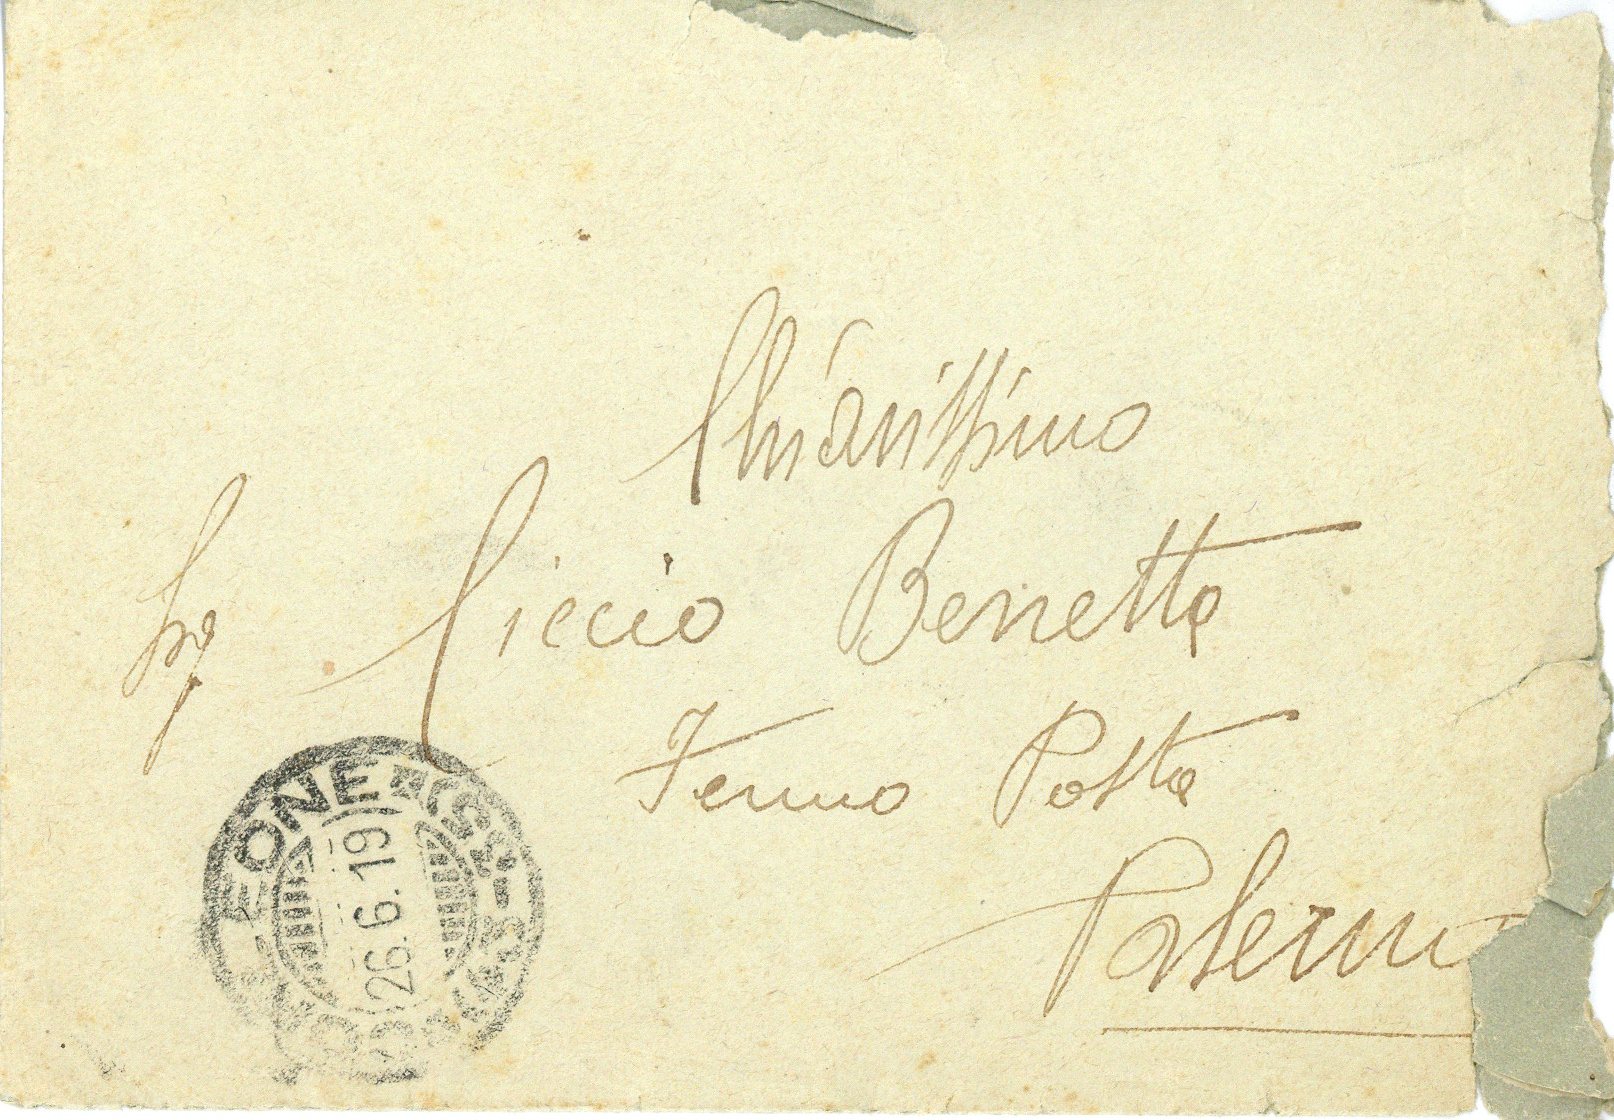 Chiarissimo
Sig Ciccio Benetta
Fermo Posta
Palermo
26.6.19